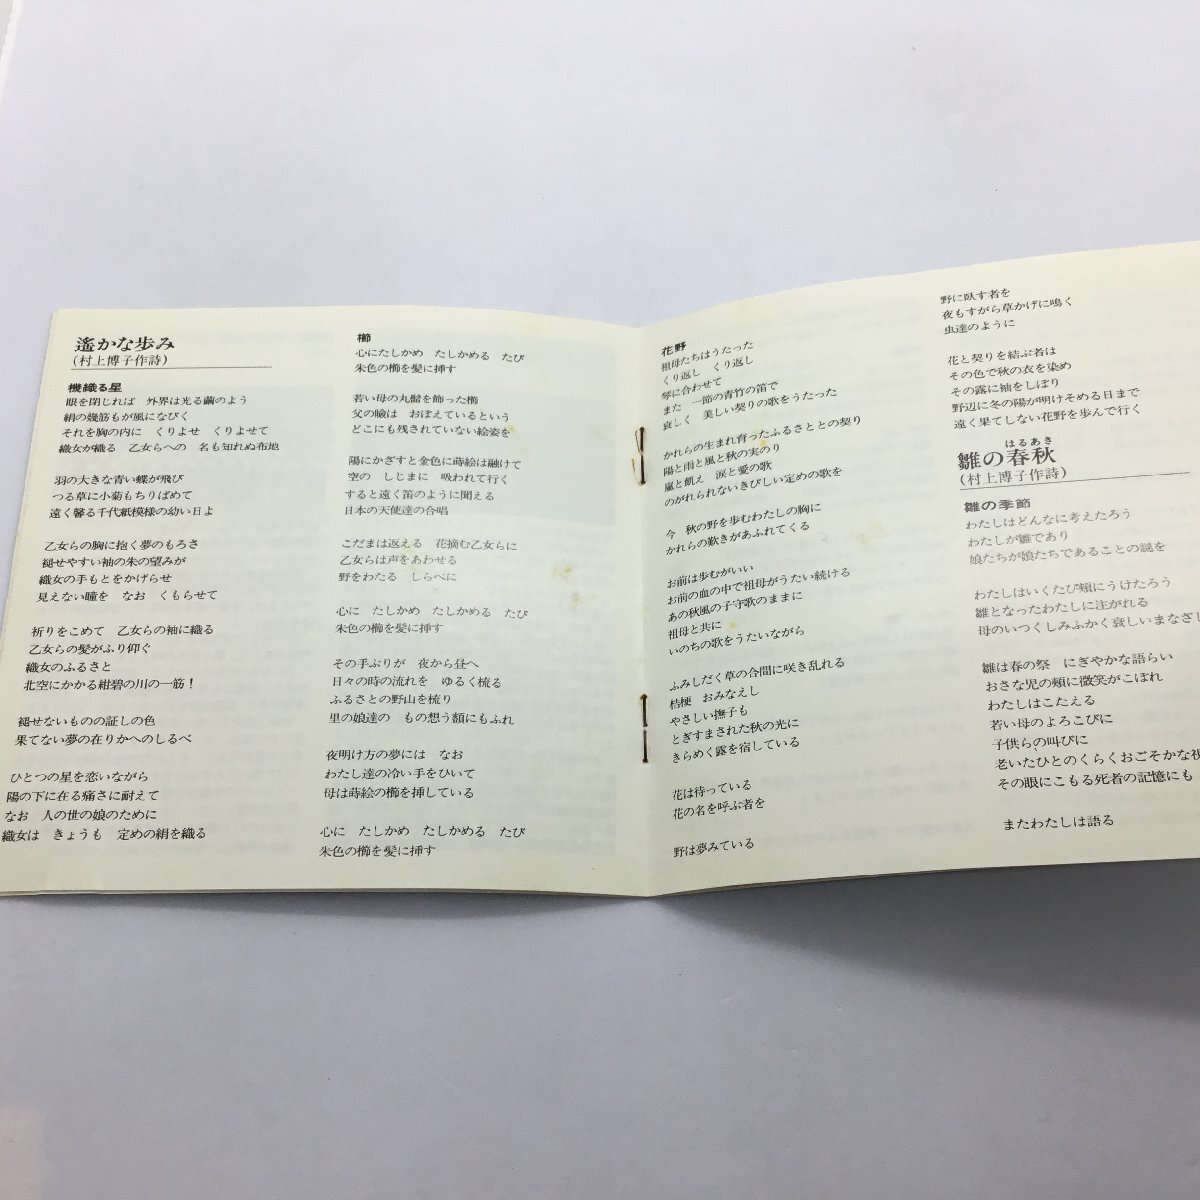 遙かな歩み
(村上博子作詩)
機織る星
眼を閉じれば　外界は光る繭のよう
絹の幾筋もが風になびく
それを胸の内に　くりよせ　くりよせて
織女が織る　乙女らへの　名も知れぬ布地
羽の大きな青い蝶が飛び
つる草に小菊もちりばめて
遠く馨る千代紙模様の幼い日よ
乙女らの胸に抱く夢のもろさ
褪せやすい袖の朱の望みが
織女の手もとをかげらせ
見えない瞳を　なお　くもらせて
祈りをこめて　乙女らの袖に織る
乙女らの髪がふり仰ぐ
織女のふるさと
北空にかかる紺碧の川の一筋！
褪せないものの証しの色
果てない夢の在りかへのしるべ
ひとつの星を恋いながら
陽の下に在る痛さに耐えて
なお　人の世の娘のために
織女は　きょうも　定めの絹を織る
櫛
心にたしかめ　たしかめる　たび
朱色の櫛を髪に挿す
若い母の丸髷を飾った櫛
父の瞼は　おぼえているという
どこにも残されていない絵姿を
陽にかざすと金色に蒔絵は融けて
空の　しじまに　吸われて行く
すると遠く笛のように聞える
日本の天使達の合唱
こだまは返える　花摘む乙女らに
乙女らは声をあわせる
野をわたる　しらべに
心に　たしかめ　たしかめる　たび
朱色の櫛を髪に挿す
その手ぶりが　夜から昼へ
日々の時の流れを　ゆるく梳る
ふるさとの野山を梳り
里の娘達の　もの想う額にもふれ
夜明け方の夢には　なお
わたし達の冷い手をひいて
母は蒔絵の櫛を挿している
心に　たしかめ　たしかめる　たび
朱色の櫛を髪に挿す
花野
祖母たちはうたった
くり返し　くり返し
琴に合わせて
また　一節の青竹の笛で
哀しく　美しい契りの歌をうたった
かれらの生まれ育ったふるさととの契り
陽と雨と風と秋の実のり
嵐と飢え　涙と愛の歌
のがれられないきびしい定めの歌を
今　秋の野を歩むわたしの胸に
かれらの歎きがあふれてくる
お前は歩むがいい
お前の血の中で祖母がうたい続ける
あの秋風の子守歌のままに
祖母と共に
いのちの歌をうたいながら
ふみしだく草の合間に咲き乱れる
桔梗　おみなえし
やさしい撫子も
とぎすまされた秋の光に
きらめく露を宿している
花は待っている
花の名を呼ぶ者を
野は夢みている
野に臥す者を
夜もすがら草かげに鳴く
虫達のように
花と契りを結ぶ者は
その色で秋の衣を染め
その露に袖をしぼり
野辺に冬の陽が明けそめる日まで
遠く果てしない花野を歩んで行く
はるあき
雛の春秋
(村上博子作詩)
雛の季節
わたしはどんなに考えたろう
わたしが雛であり
娘たちが娘たちであることの謎を
わたしはいくたび頬にうけたろう
雛となったわたしに注がれる
母のいつくしみふかく哀しいまなざし
雛は春の祭　にぎやかな語らい
おさな児の頬に微笑がこぼれ
わたしはこたえる
若い母のよろこびに
子供らの叫びに
老いたひとのくらくおごそかな
その眼にこもる死者の記憶にも
またわたしは語る